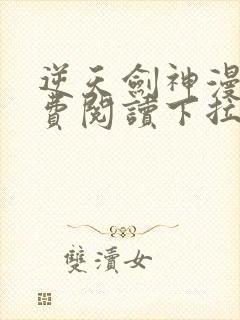 逆天劍神漫
費閱讀下拉
雙瀆女